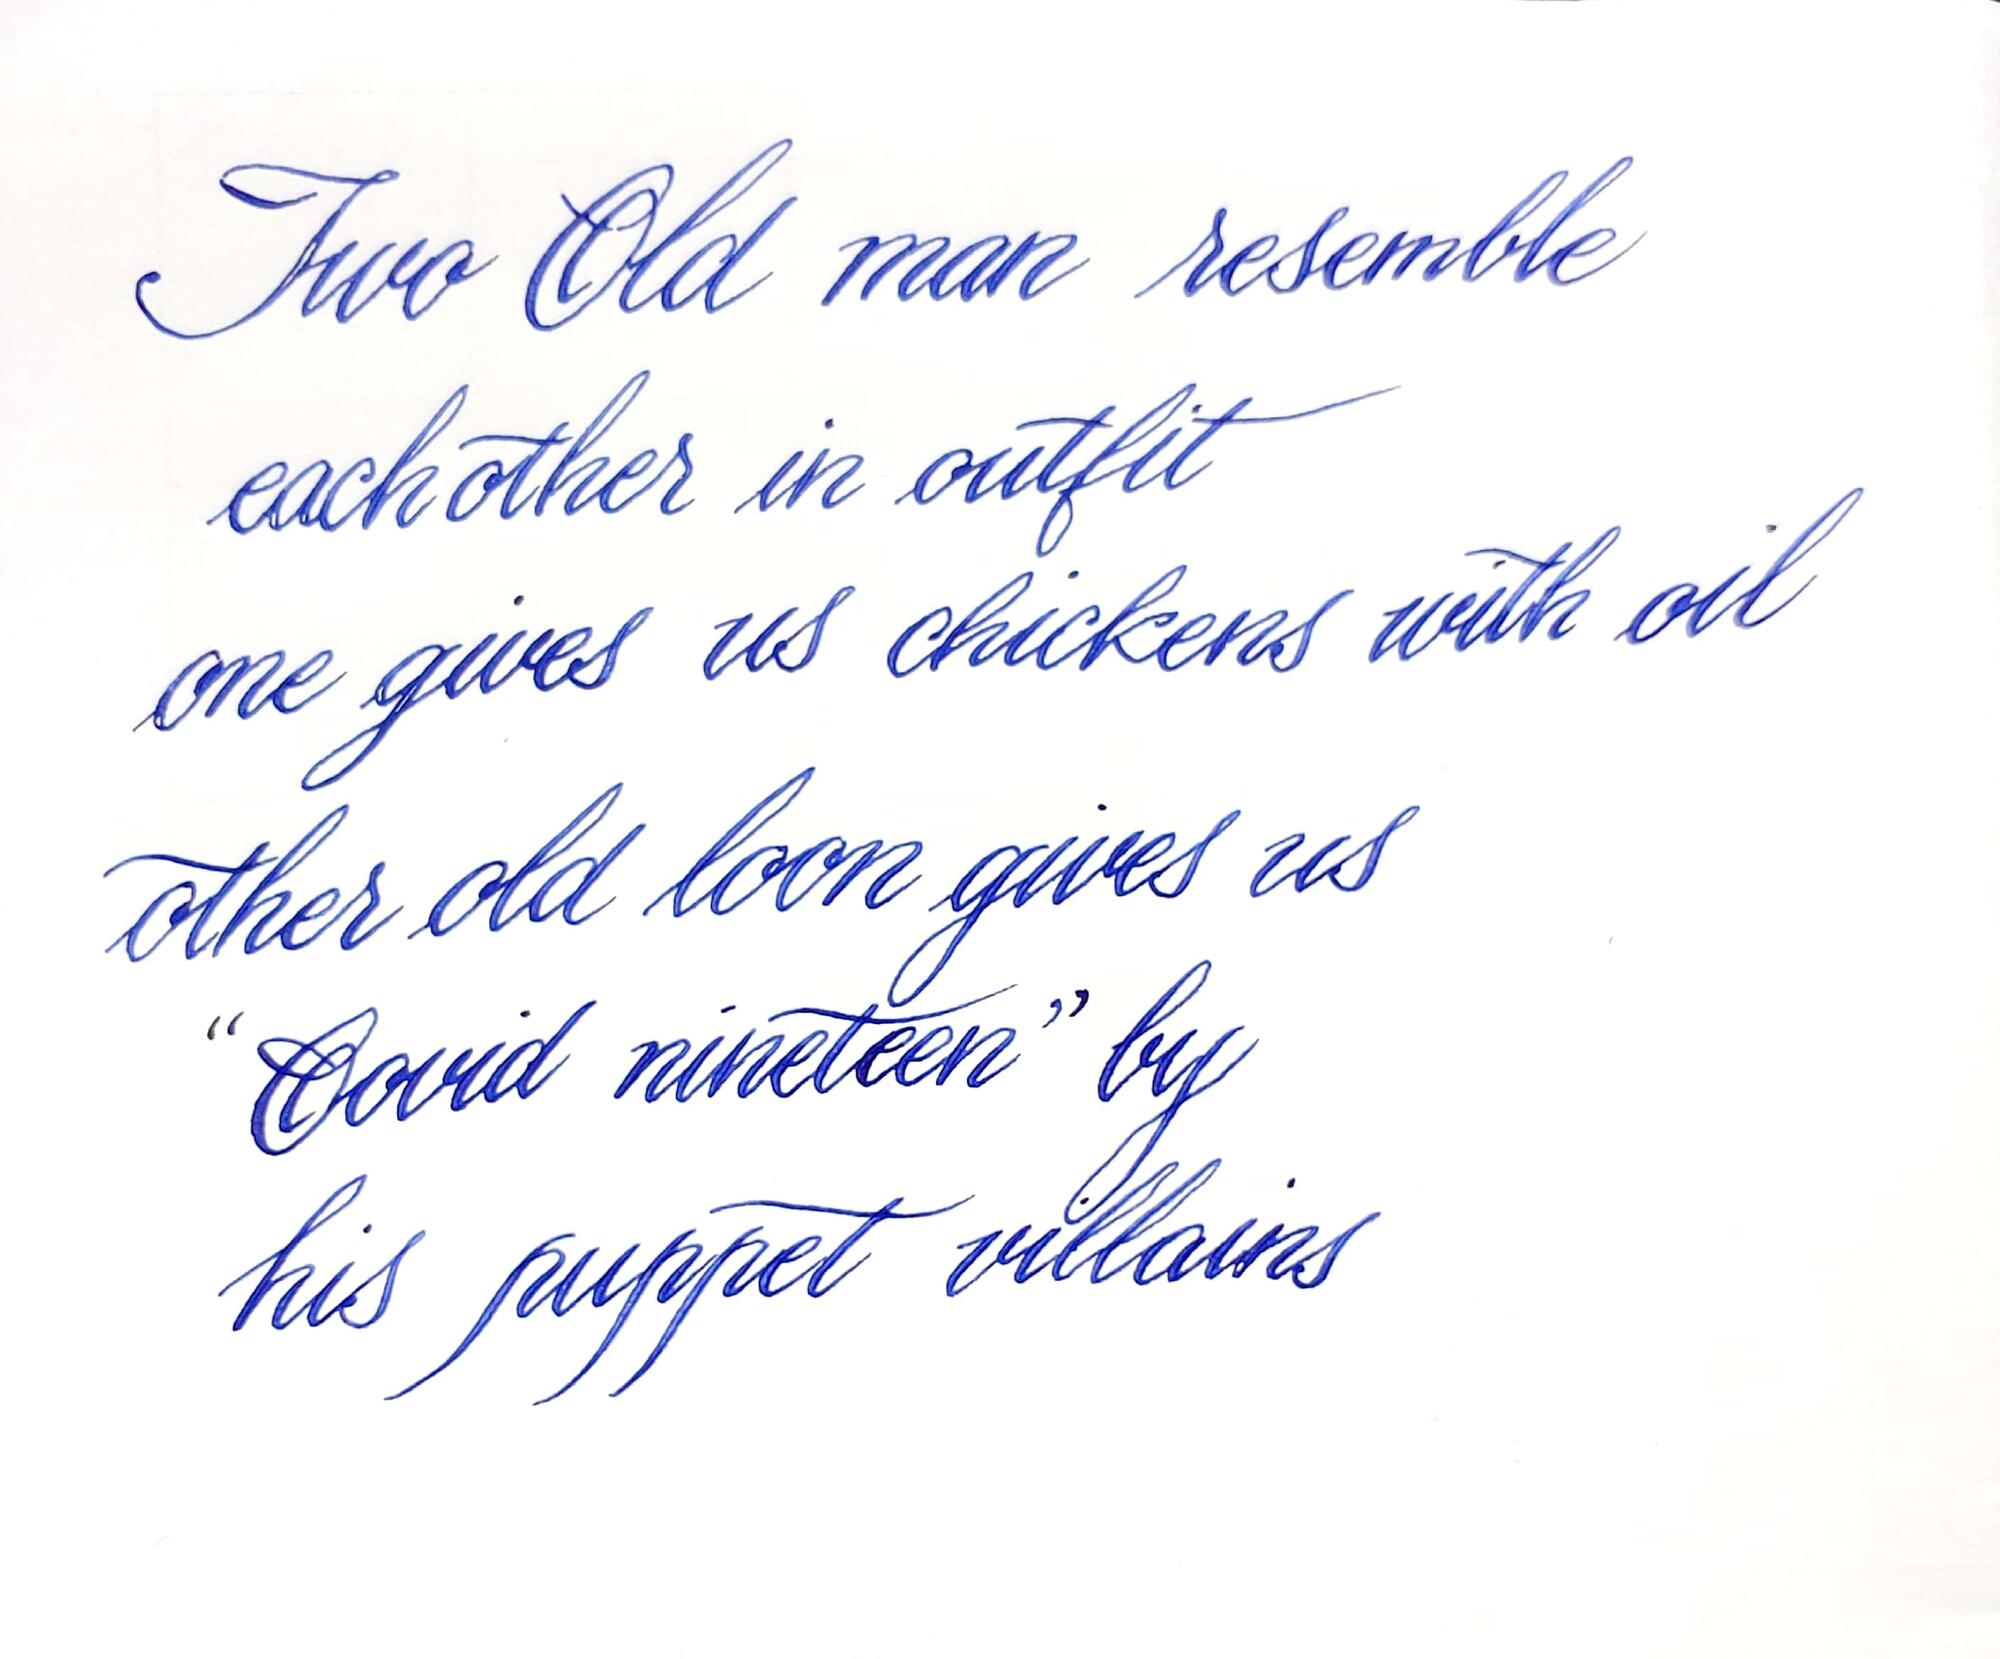 Two Old man resemble
eachother in outfit
one gives us chickens with oil
other old loon gives us
“Covid nineteen” by
his puppet villains